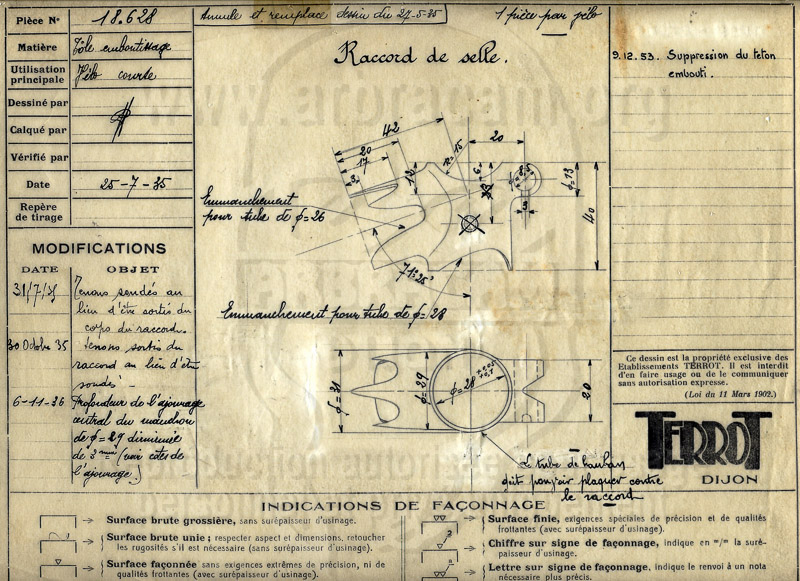 Pièce N° 18.628
Matière Tôle emboutissage
Utilisation principale Vélo course
Dessiné par
Calqué par
Vérifié par
Date 25-7-35
Repère de tirage
MODIFICATIONS
DATE OBJET
31/7/35 Tenons soudés au
lieu d'être sortis du
corps du raccord.
30 Octobre 35 Tenons sortis du
raccord au lieu d'être
soudés.
6-11-36 Profondeur de l'ajourage
central du manchon
de φ=29 diminuée
de 3 mm (voir cotes de
l'ajourage.)
Annule et remplace dessin du 27-5-35
1 pièce par vélo
Raccord de selle.
42
20
17
3
13
R=15
20
6
8,5
φ=13
40
3
Emmanchement
pour tube de φ=26
71°25'
Emmanchement pour tube de φ=28
φ=31
φ=29
φ=28
20
Le tube de hauban
doit pouvoir plaquer contre
le raccord
9.12.53. Suppression du teton
embouti.
Ce dessin est la propriété exclusive des
Etablissements TERROT. Il est interdit
d'en faire usage ou de le communiquer
sans autorisation expresse.
(Loi du 11 Mars 1902.)
TERROT
DIJON
INDICATIONS DE FAÇONNAGE
Surface brute grossière, sans surépaisseur d'usinage.
Surface brute unie; respecter aspect et dimensions, retoucher
les rugosités s'il est nécessaire (sans surépaisseur d'usinage).
Surface façonnée sans exigences extrêmes de précision, ni de
qualités frottantes (avec surépaisseur d'usinage).
Surface finie, exigences spéciales de précision et de qualités
frottantes (avec surépaisseur d'usinage).
Chiffre sur signe de façonnage, indique en m/m la suré-
paisseur d'usinage.
Lettre sur signe de façonnage, indique le renvoi à un nota
nécessaire plus précis.